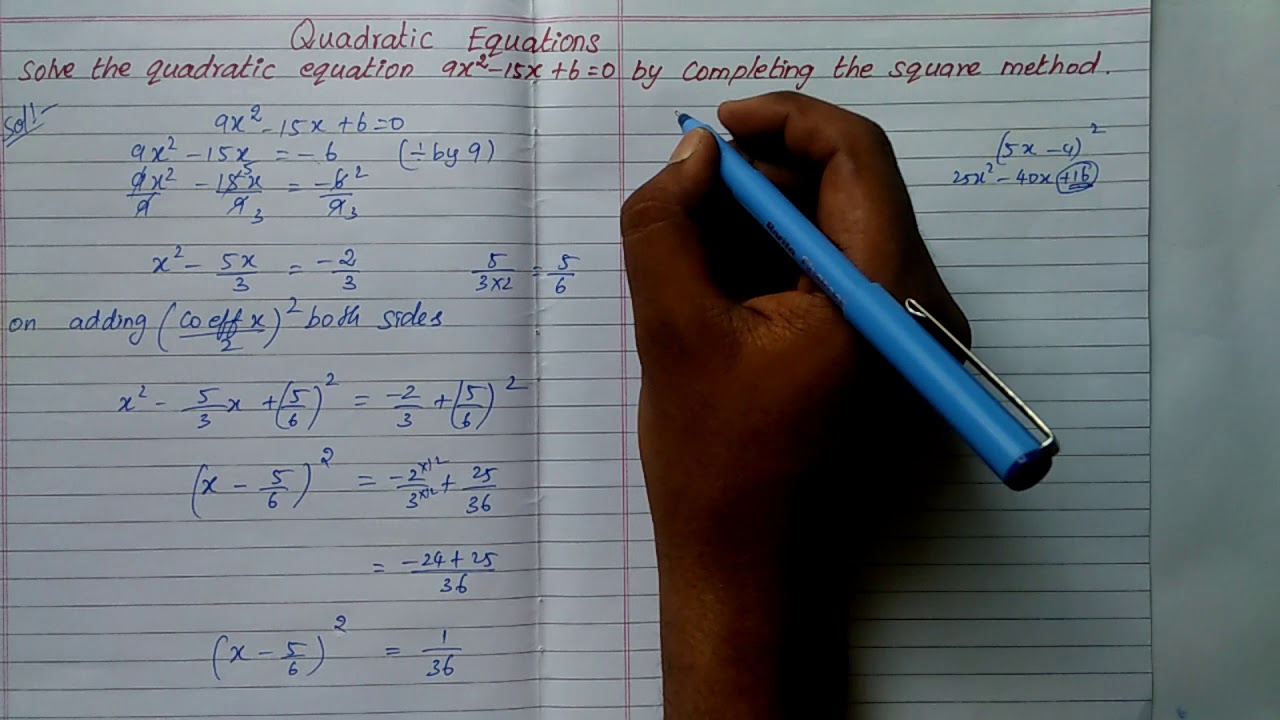 Quadratic Equations
Solve the quadratic equation 9x²-15x+6=0 by completing the square method.
Sol:-
9x²-15x+6=0
9x²-15x = -6 (÷ by 9)
9x²/9 - 15 5x/9 3 = -6 2/9 3
x² - 5x/3 = -2/3 5/3×2 = 5/6
on adding (coeff x/2)² both sides
x² - 5/3 x + (5/6)² = -2/3 + (5/6)²
(x - 5/6)² = -2×12/3×12 + 25/36
= -24+25/36
(x - 5/6)² = 1/36
(5x-4)²
25x²-40x+16